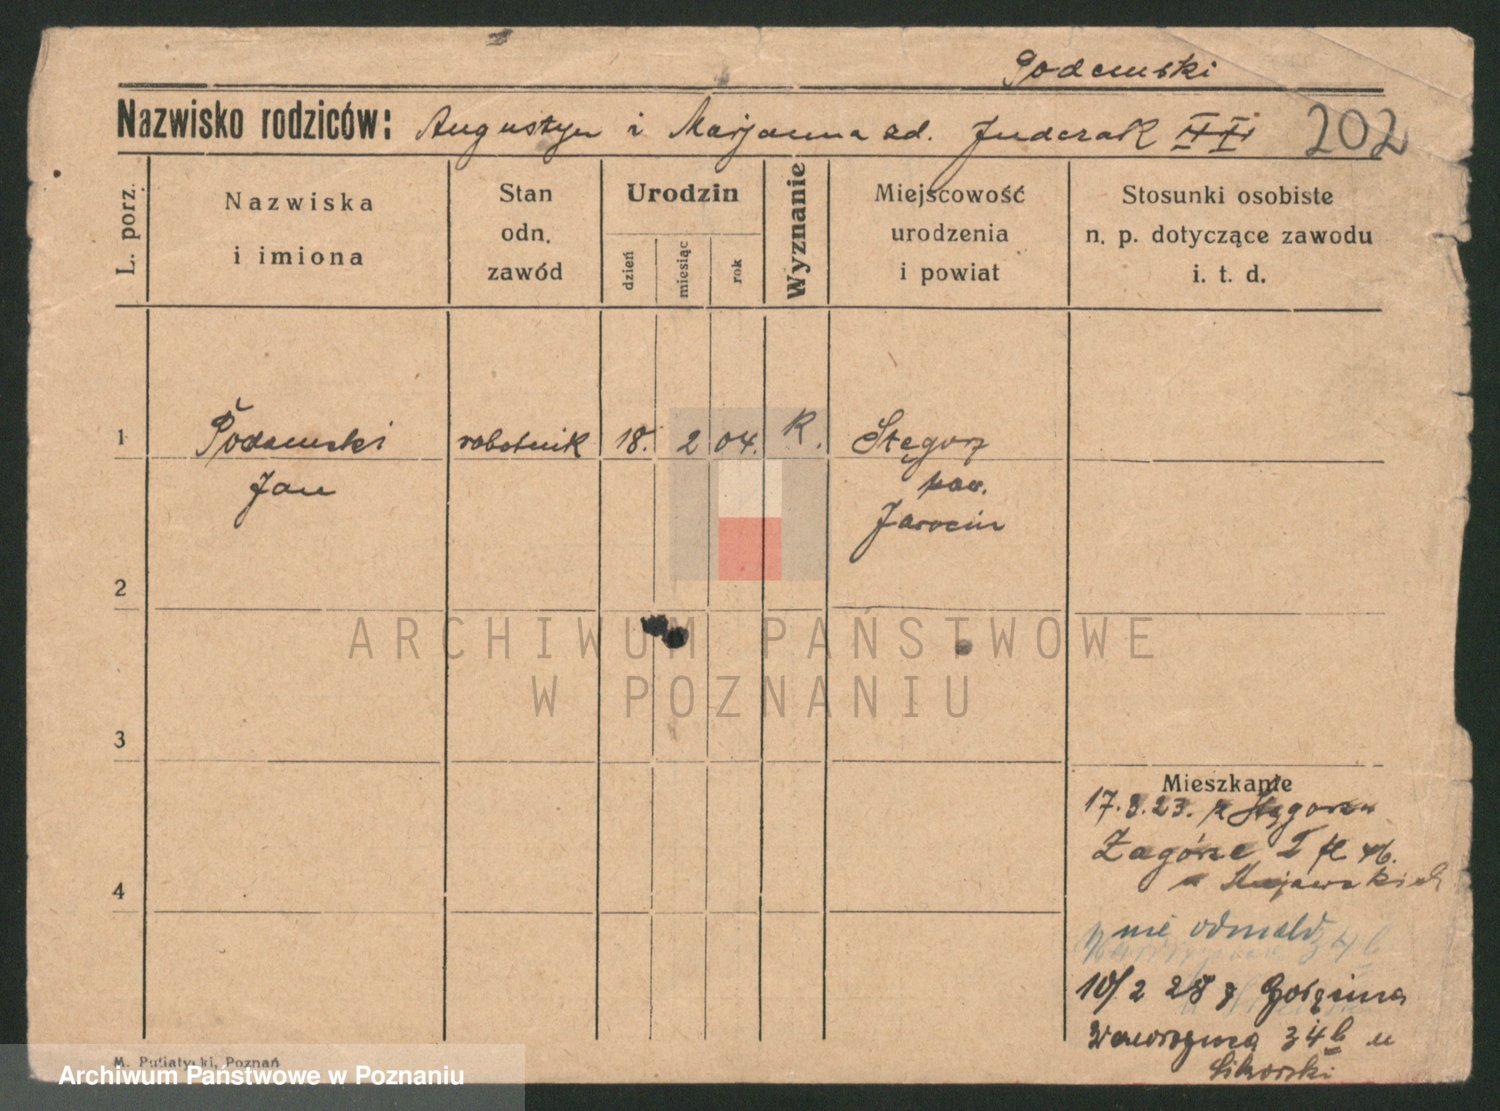 Podemski
Nazwisko rodziców: Augustyn i Marjanna zd. Judczak
202
L. porz.
Nazwiska
i imiona
Stan
odn.
zawód
Urodzin
dzień
miesiąc
rok
Wyznanie
Miejscowość
urodzenia
i powiat
Stosunki osobiste
n. p. dotyczące zawodu
i. t. d.
1 Podemski robotnik 18. 2 04. K. Stęgosz
Jan pow.
Jarocin
2
ARCHIWUM PAŃSTWOWE
W POZNANIU
3
Mieszkanie
17.3.23. z
Zagórze
4
nie odmeld
10/2 28 z
Wawrzyńca 34b u
Sikorski
M. Putiatycki, Poznań
Archiwum Państwowe w Poznaniu